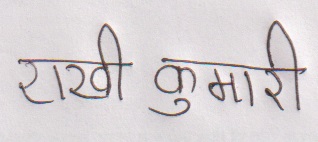 राखी कुमारी